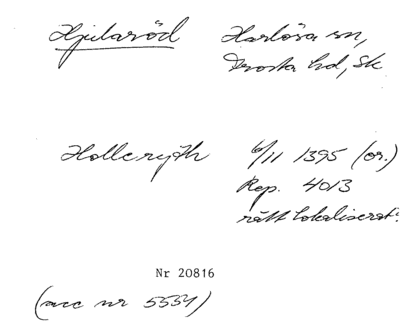 Hjularöd Harlösa sn,
Frosta hd, Sk
Hollerythh 6/11 1395 (or.)
Rep. 4013
rätt lokaliserat?
Nr 20816
(acc nr 5554)